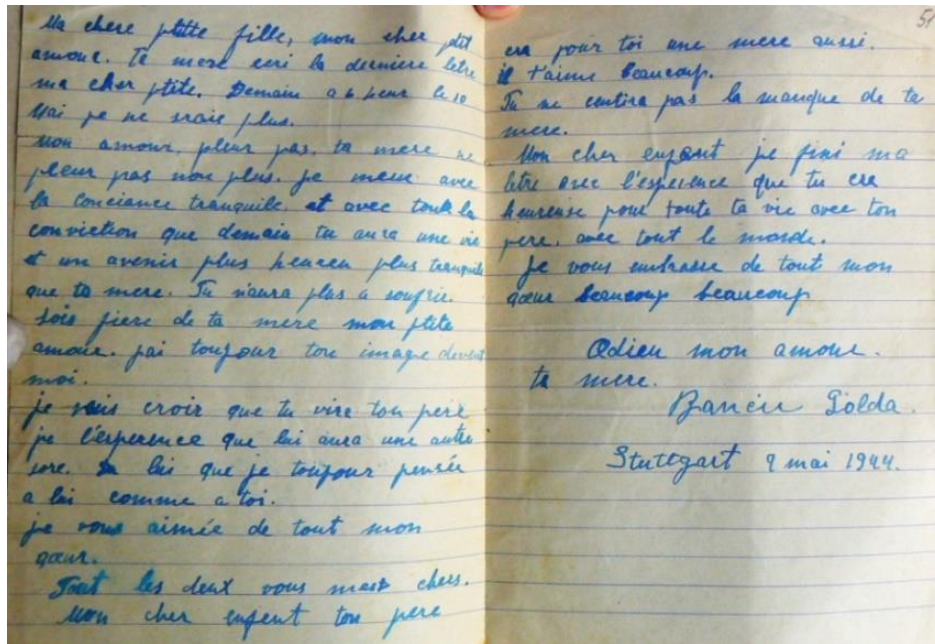 Ma chere ptite fille, mon cher ptit
amour. Ta mere ecri la derniere letre
ma cher ptite. Demain a 6 heur le 10
Mai je ne serais plus.
Mon amour, pleur pas, ta mere ne
pleur pas non plus. je meur avec
la conciance tranquile et avec toute la
conviction que demain tu aura une vie
et un avenir plus heureu plus tranquile
que ta mere. Tu n'aura plus a soufrir.
Sois fiere de ta mere mon ptite
amour. j'ai toujour ton image devent
moi.
je vais croir que tu vera ton pere
je l'esperence que lui aura une autre
sore. lui que je toujour pensée
a lui comme a toi.
je vous aimée de tout mon
qœur.
Tout les deux vous mest chers.
Mon cher enfent ton pere
51
era pour toi une mere aussi.
il t'aime beaucoup.
Tu ne centira pas la manque de ta
mere.
Mon cher enfant je fini ma
letre avec l'esperence que tu era
heureuse pour toute ta vie avec ton
pere, avec tout le monde.
je vous embrasse de tout mon
qœur beaucoup beaucoup
Adieu mon amour.
ta mere.
Bancic Golda.
Stuttgart 9 mai 1944.